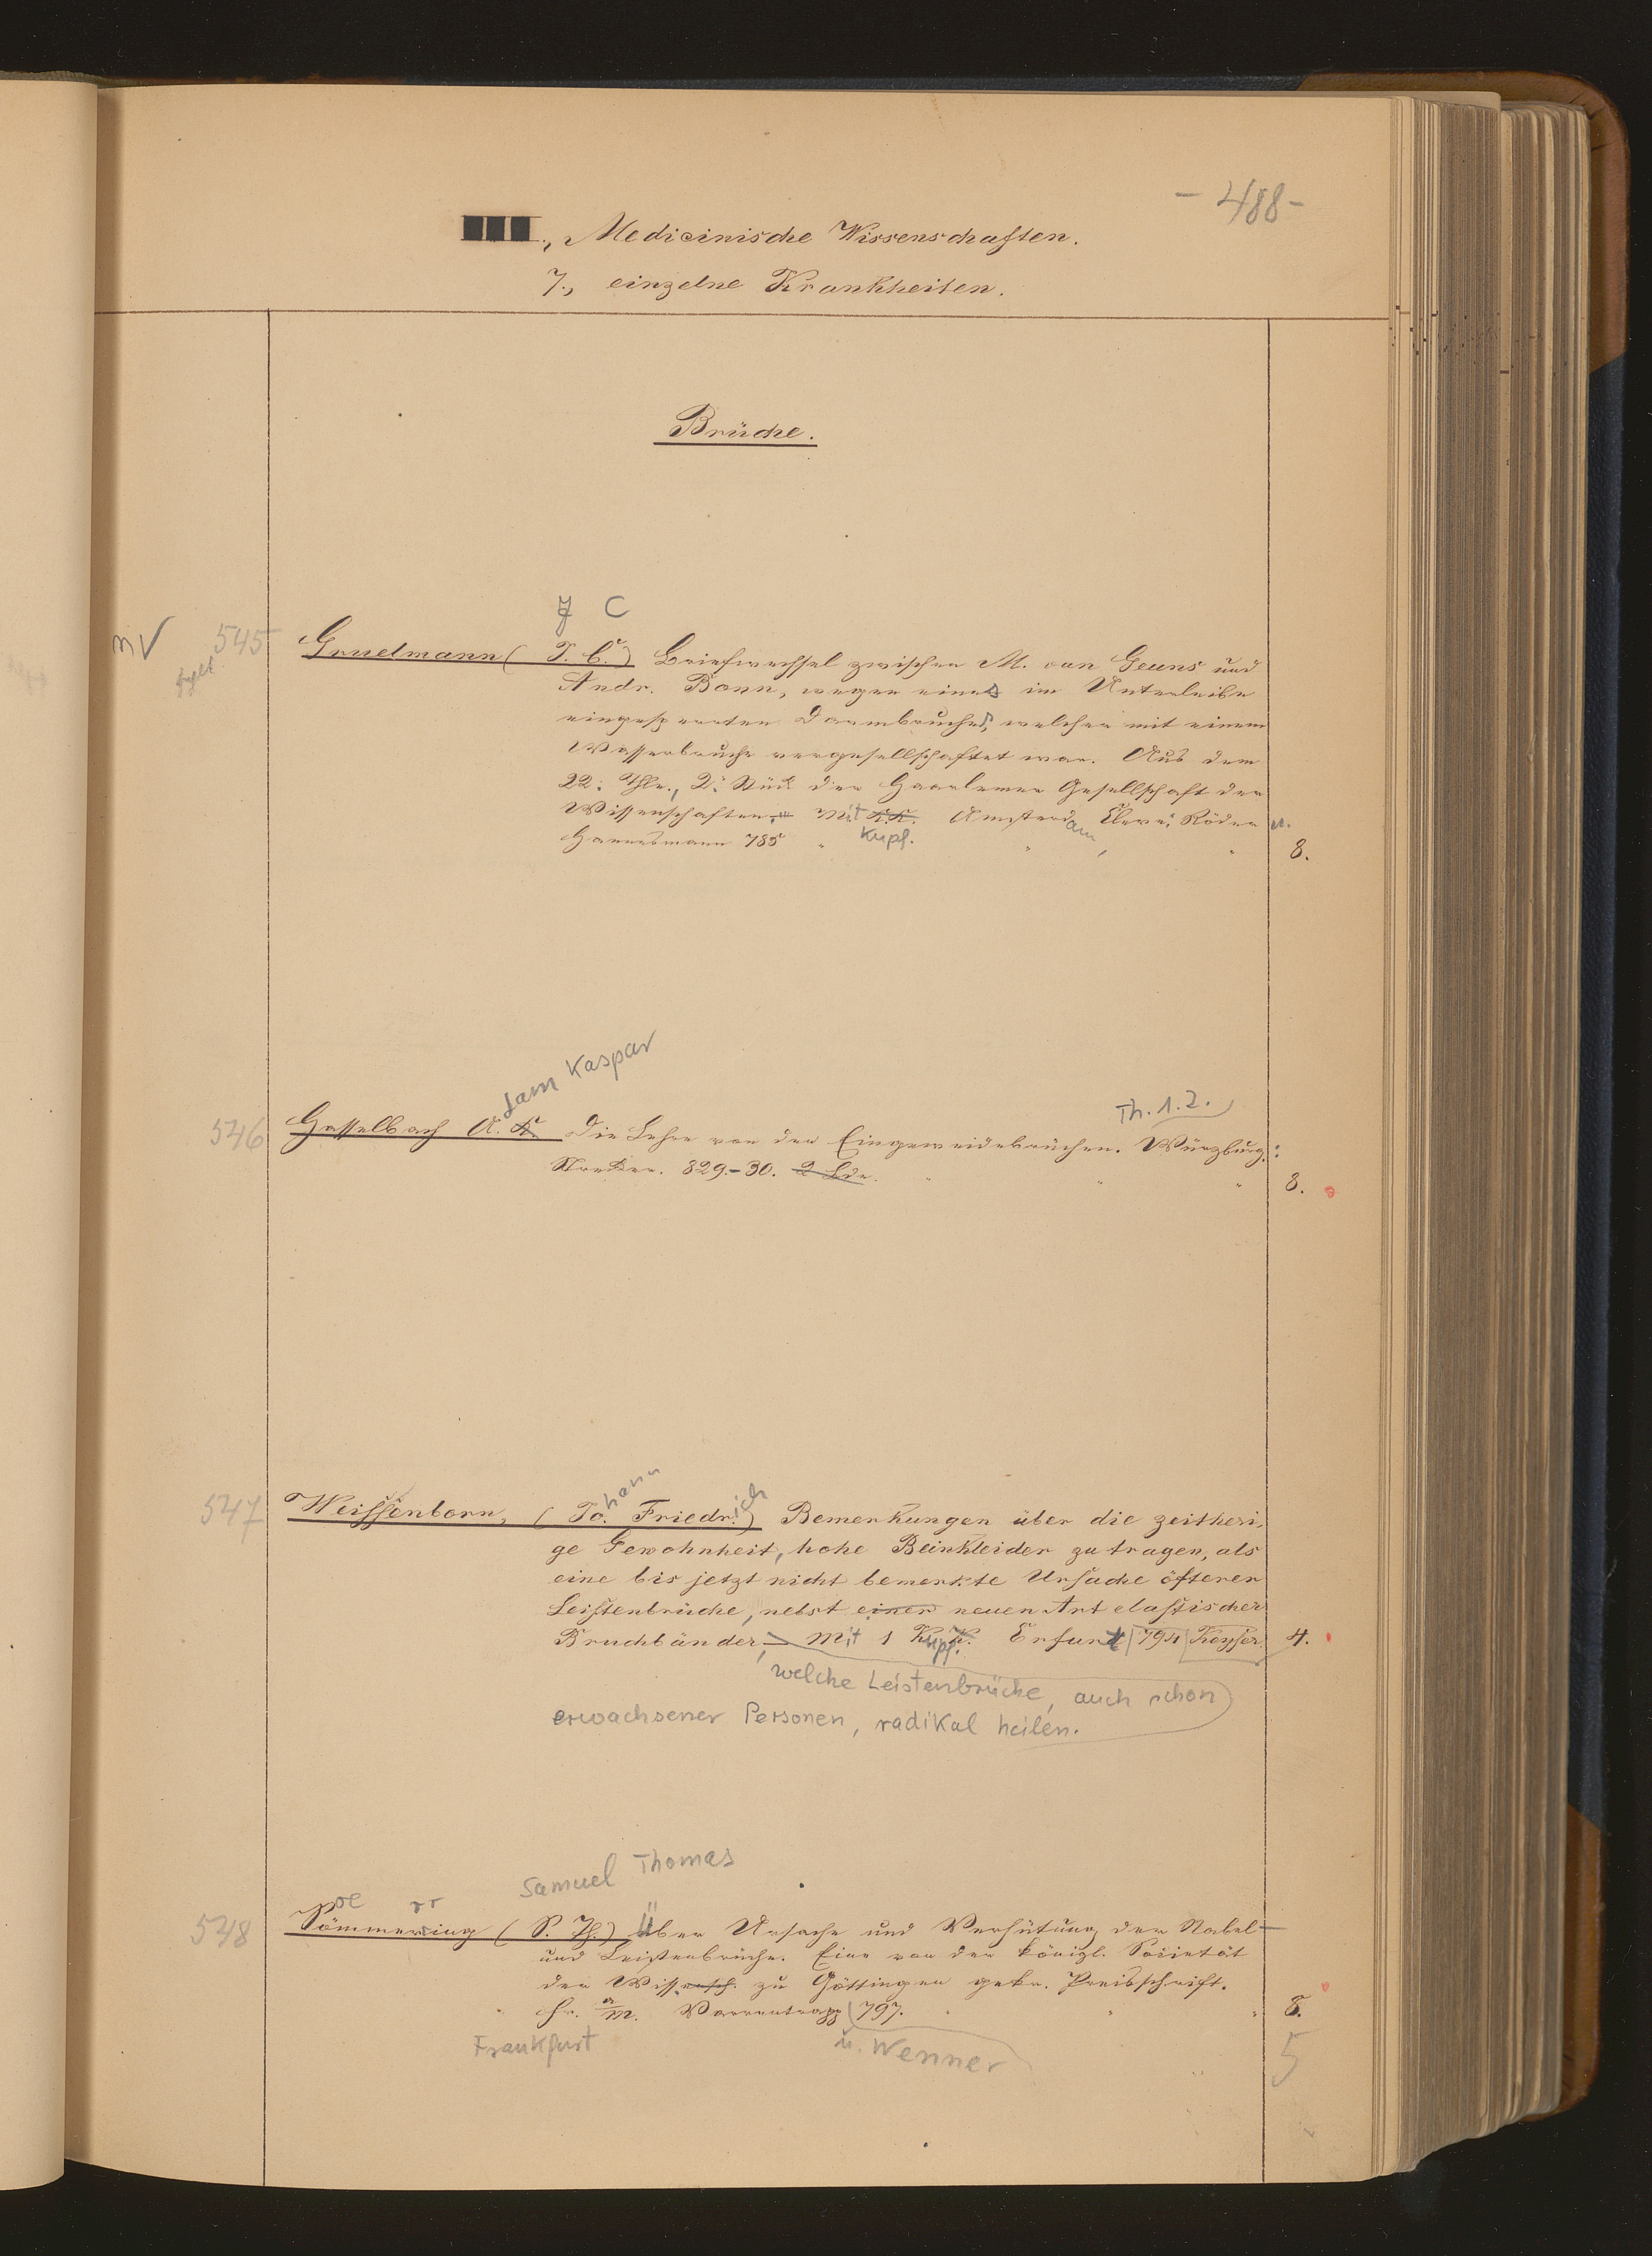 - 488 -
III., Medicinische Wissenschaften.
7., einzelne Krankheiten.
Brüche.
J C
545 Gruelmann (J. C.) Briefwechsel zwischen M. van Geuns und
Andr. Bonn, wegen eines im Unterleibe
eingesperrten Darmbruches, welcher mit einem
Wasserbruche vergesellschaftet war. Aus dem
22. Thle., 2. Stück der Haarlemer Gesellschaft der
Wissenschaften. mit K.K. Amsterdam, Röder u.
Kupf.
Hannesmann 785 " " " 8.
dam Kaspar
Th. 1.2.
546 Hesselbach A. K. Die Lehre von den Eingeweidebrüchen. Würzburg:
Strecker. 829.-30. 2 Bde. " " " 8.
hann ich
547 Weissenborn, (Jo. Friedr.) Bemerkungen über die zeitheri-
ge Gewohnheit, hohe Beinkleider zu tragen, als
eine bis jetzt nicht bemerkte Ursache öfterer
Leistenbrüche, nebst einer neuen Art elastischer
Bruchbänder, mit 1 Kupf. Erfurt 794 Keyser 4.
welche Leistenbrüche, auch schon
erwachsener Personen, radikal heilen.
Samuel Thomas
oe rr
548 Sömmering (S. Th.) Über Ursache und Verhütung der Nabel-
und Leistenbrüche. Eine von der königl. Societät
der Wissensch. zu Göttingen gekr. Preisschrift.
Fr. a/m. Varrentrapp 797. " " 8.
Frankfurt u. Wenner 5